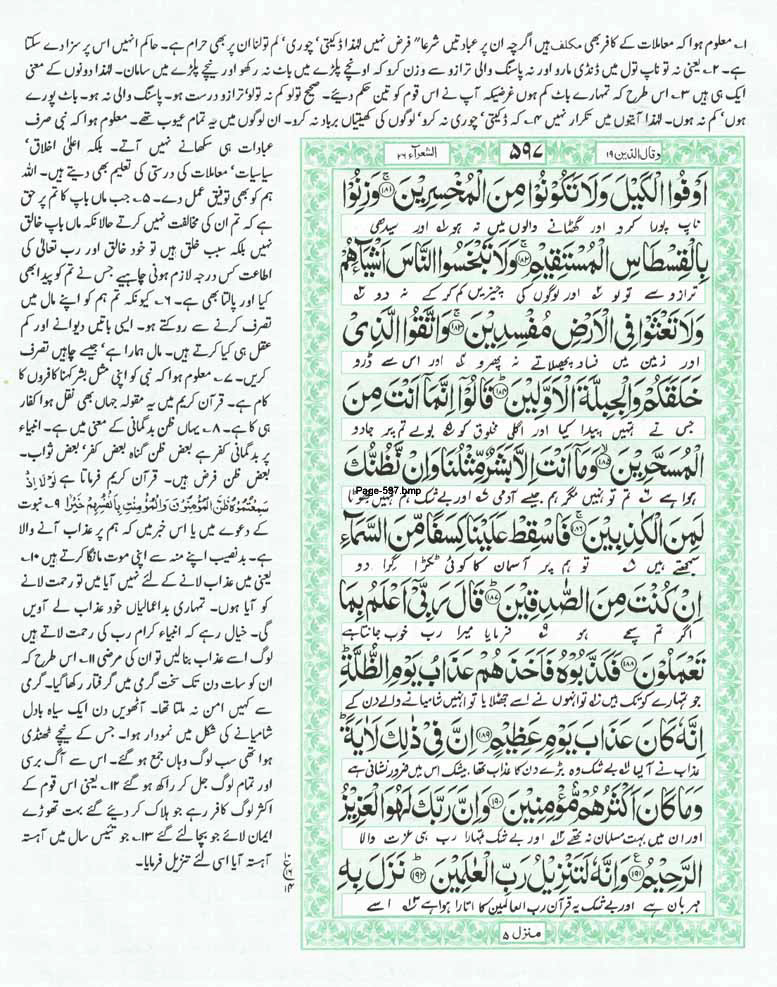 ۱؎ معلوم ہوا کہ معاملات کے کافر بھی مکلف ہیں اگرچہ ان پر عبادتیں شرعا" فرض نہیں لہٰذا ڈکیتی' چوری' کم تولنا ان پر بھی حرام ہے۔ حاکم انہیں اس پر سزا دے سکتا
ہے۔ ۲؎ یعنی نہ تو ناپ تول میں ڈنڈی مارو اور نہ پاسنگ والی ترازو سے وزن کرو کہ اونچے پلڑے میں باٹ نہ رکھو اور نیچے پلڑے میں سامان۔ لہٰذا دونوں کے معنی
ایک ہی ہیں ۳؎ اس طرح کہ تمہارے باٹ کم ہوں غرضیکہ آپ نے اس قوم کو تین حکم دیئے۔ صحیح تولو کم نہ تولو' ترازو درست ہو۔ پاسنگ والی نہ ہو۔ باٹ پورے
ہوں' کم نہ ہوں۔ لہٰذا آیتوں میں تکرار نہیں ۴؎ کہ ڈکیتی' چوری نہ کرو' لوگوں کی کھیتیاں برباد نہ کرو۔ ان لوگوں میں یہ تمام عیوب تھے۔ معلوم ہوا کہ نبی صرف
عبادات ہی سکھانے نہیں آتے۔ بلکہ اعلیٰ اخلاق'
سیاسیات' معاملات کی درستی کی تعلیم بھی دیتے ہیں۔ اللہ
ہم کو بھی توفیق عمل دے۔ ۵؎ جب ماں باپ کا تم پر حق
ہے کہ تم ان کی مخالفت نہیں کرتے حالانکہ ماں باپ خالق
نہیں بلکہ سبب خلق ہیں تو خود خالق اور رب تعالیٰ کی
اطاعت کس درجہ لازم ہونی چاہیے جس نے تم کو پیدا بھی
کیا اور پالتا بھی ہے۔ ۶؎ کیونکہ تم ہم کو اپنے مال میں
تصرف کرنے سے روکتے ہو۔ ایسی باتیں دیوانے اور کم
عقل ہی کیا کرتے ہیں۔ مال ہمارا ہے' جیسے چاہیں تصرف
کریں۔ ۷؎ معلوم ہوا کہ نبی کو اپنی مثل بشر کہنا کافروں کا
کام ہے۔ قرآن کریم میں یہ مقولہ جہاں بھی نقل ہوا کفار
ہی کا ہے۔ ۸؎ یہاں ظن بدگمانی کے معنی میں ہے۔ انبیاء
پر بدگمانی کفر ہے بعض ظن گناہ بعض کفر' بعض ثواب۔
بعض ظن فرض ہیں۔ قرآن کریم فرماتا ہے لَوْلَا اِذْ
سَمِعْتُمُوْهُ ظَنَّ الْمُؤْمِنُوْنَ وَالْمُؤْمِنٰتُ بِاَنْفُسِهِمْ خَيْرًا ۹؎ نبوت
کے دعوے میں یا اس خبر میں کہ ہم پر عذاب آنے والا
ہے۔ بدنصیب اپنے منہ سے اپنی موت مانگا کرتے ہیں ۱۰؎
یعنی میں عذاب لانے کے لئے نہیں آیا میں تو رحمت لانے
کو آیا ہوں۔ تمہاری بداعمالیاں خود عذاب لے آویں
گی۔ خیال رہے کہ انبیاء کرام رب کی رحمت لاتے ہیں
لوگ اسے عذاب بنالیں تو ان کی مرضی ۱۱؎ اس طرح کہ
ان کو سات دن تک سخت گرمی میں گرفتار رکھا گیا۔ گرمی
سے کہیں امن نہ ملتا تھا۔ آٹھویں دن ایک سیاہ بادل
شامیانے کی شکل میں نمودار ہوا۔ جس کے نیچے ٹھنڈی
ہوا تھی سب لوگ وہاں جمع ہو گئے۔ اس سے آگ برسی
اور تمام لوگ جل کر راکھ ہو گئے ۱۲؎ یعنی اس قوم کے
اکثر لوگ کافر رہے جو ہلاک کر دیئے گئے بہت تھوڑے
ایمان لائے جو بچا لئے گئے ۱۳؎ جو تئیس سال میں آہستہ
آہستہ آیا اسی لئے تنزیل فرمایا۔
وقال الذین ۱۹ ۵۹۷ الشعرآء ۲۶
اَوْفُوا الْكَيْلَ وَلَا تَكُوْنُوْا مِنَ الْمُخْسِرِيْنَ ۝۱۸۱ وَزِنُوْا
ناپ پورا کرو اور گھٹانے والوں میں نہ ہو ۱؎ اور سیدھی
بِالْقِسْطَاسِ الْمُسْتَقِيْمِ ۝۱۸۲ وَلَا تَبْخَسُوا النَّاسَ اَشْيَآءَهُمْ
ترازو سے تولو ۲؎ اور لوگوں کی چیزیں کم کر کے نہ دو ۳؎
وَلَا تَعْثَوْا فِي الْاَرْضِ مُفْسِدِيْنَ ۝۱۸۳ وَاتَّقُوا الَّذِيْ
اور زمین میں فساد پھیلاتے نہ پھرو ۴؎ اور اس سے ڈرو
خَلَقَكُمْ وَالْجِبِلَّةَ الْاَوَّلِيْنَ ۝۱۸۴ قَالُوْٓا اِنَّمَآ اَنْتَ مِنَ
جس نے تمہیں پیدا کیا اور اگلی مخلوق کو ۵؎ بولے تم پر جادو
الْمُسَحَّرِيْنَ ۝۱۸۵ وَمَآ اَنْتَ اِلَّا بَشَرٌ مِّثْلُنَا وَاِنْ نَّظُنُّكَ
Page-597.bmp
ہوا ہے ۶؎ تم تو نہیں مگر ہم جیسے آدمی ۷؎ اور بے شک ہم تمہیں جھوٹا
لَمِنَ الْكٰذِبِيْنَ ۝۱۸۶ فَاَسْقِطْ عَلَيْنَا كِسَفًا مِّنَ السَّمَآءِ
سمجھتے ہیں ۸؎ تو ہم پر آسمان کا کوئی ٹکڑا گرا دو
اِنْ كُنْتَ مِنَ الصّٰدِقِيْنَ ۝۱۸۷ قَالَ رَبِّيْٓ اَعْلَمُ بِمَا
اگر تم سچے ہو ۹؎ فرمایا میرا رب خوب جانتا ہے
تَعْمَلُوْنَ ۝۱۸۸ فَكَذَّبُوْهُ فَاَخَذَهُمْ عَذَابُ يَوْمِ الظُّلَّةِ ؕ
جو تمہارے کوتک ہیں ۱۰؎ تو انہوں نے اسے جھٹلایا تو انہیں شامیانے والے دن کے
اِنَّهٗ كَانَ عَذَابَ يَوْمٍ عَظِيْمٍ ۝۱۸۹ اِنَّ فِيْ ذٰلِكَ لَاٰيَةً ؕ
عذاب نے آلیا ۱۱؎ بے شک وہ بڑے دن کا عذاب تھا بیشک اس میں ضرور نشانی ہے
وَمَا كَانَ اَكْثَرُهُمْ مُّؤْمِنِيْنَ ۝۱۹۰ وَاِنَّ رَبَّكَ لَهُوَ الْعَزِيْزُ
اور ان میں بہت مسلمان نہ تھے ۱۲؎ اور بے شک تمہارا رب ہی عزت والا
الرَّحِيْمُ ۝۱۹۱ وَاِنَّهٗ لَتَنْزِيْلُ رَبِّ الْعٰلَمِيْنَ ۝۱۹۲ نَزَلَ بِهِ
مہربان ہے اور بے شک یہ قرآن رب العالمین کا اتارا ہوا ہے ۱۳؎ اسے
منزل ۵